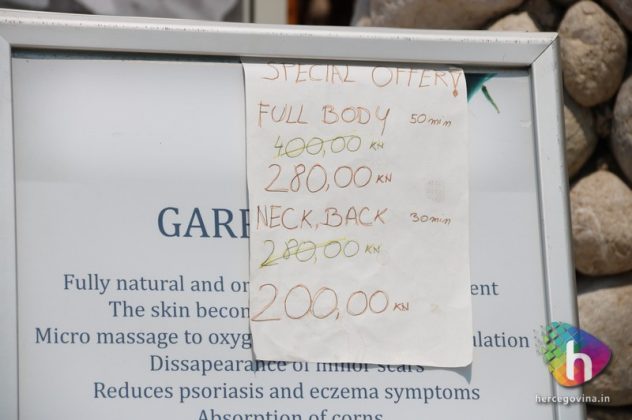 SPECIAL OFFER!
FULL BODY 50 min
400,00 KN
280,00 KN
NECK, BACK 30 min
280,00 KN
200,00 KN
Fully natural and
The skin
Micro massage to
Dissapearance of minor scars
Reduces psoriasis and eczema symptoms
Absorption of corns
h
hercegovina.in